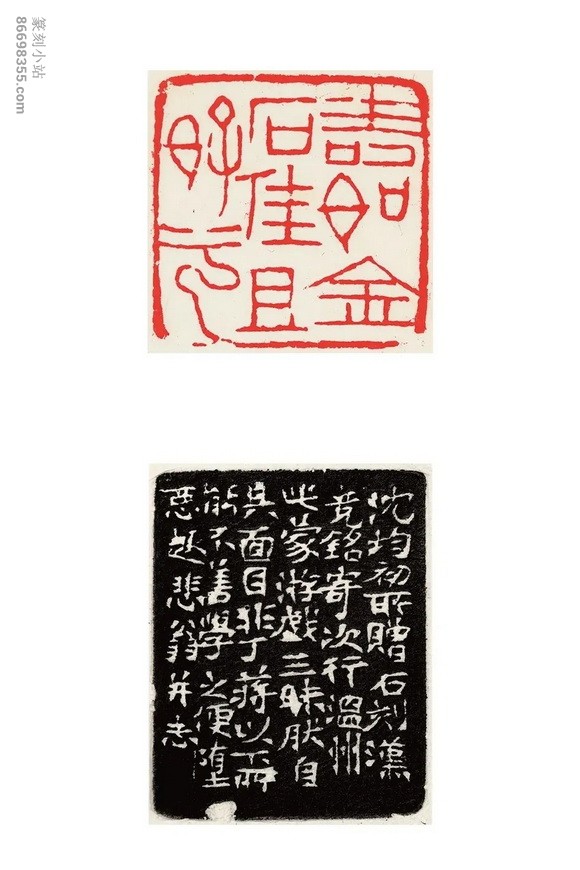 篆刻小站
86698355.com
壽如金
石佳且
好兮
沈均初所贈石刻漢
竟銘寄次行溫州
此蒙游戲三昧然自
具面目非丁蔣以下
能不善學之便墮
惡趣悲翁并志